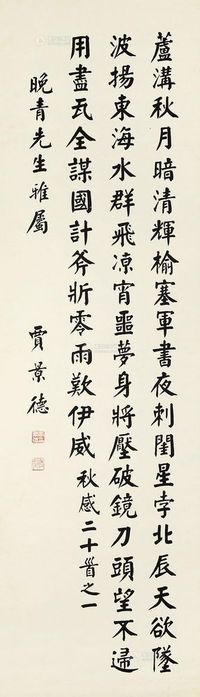 蘆溝秋月暗清輝榆塞軍書夜刺閨星孛北辰天欲墜
波揚東海水群飛涼宵噩夢身將壓破鏡刀頭望不歸
用盡瓦全謀國計斧斨零雨歎伊威 秋感二十首之一
晚青先生雅屬
賈景德